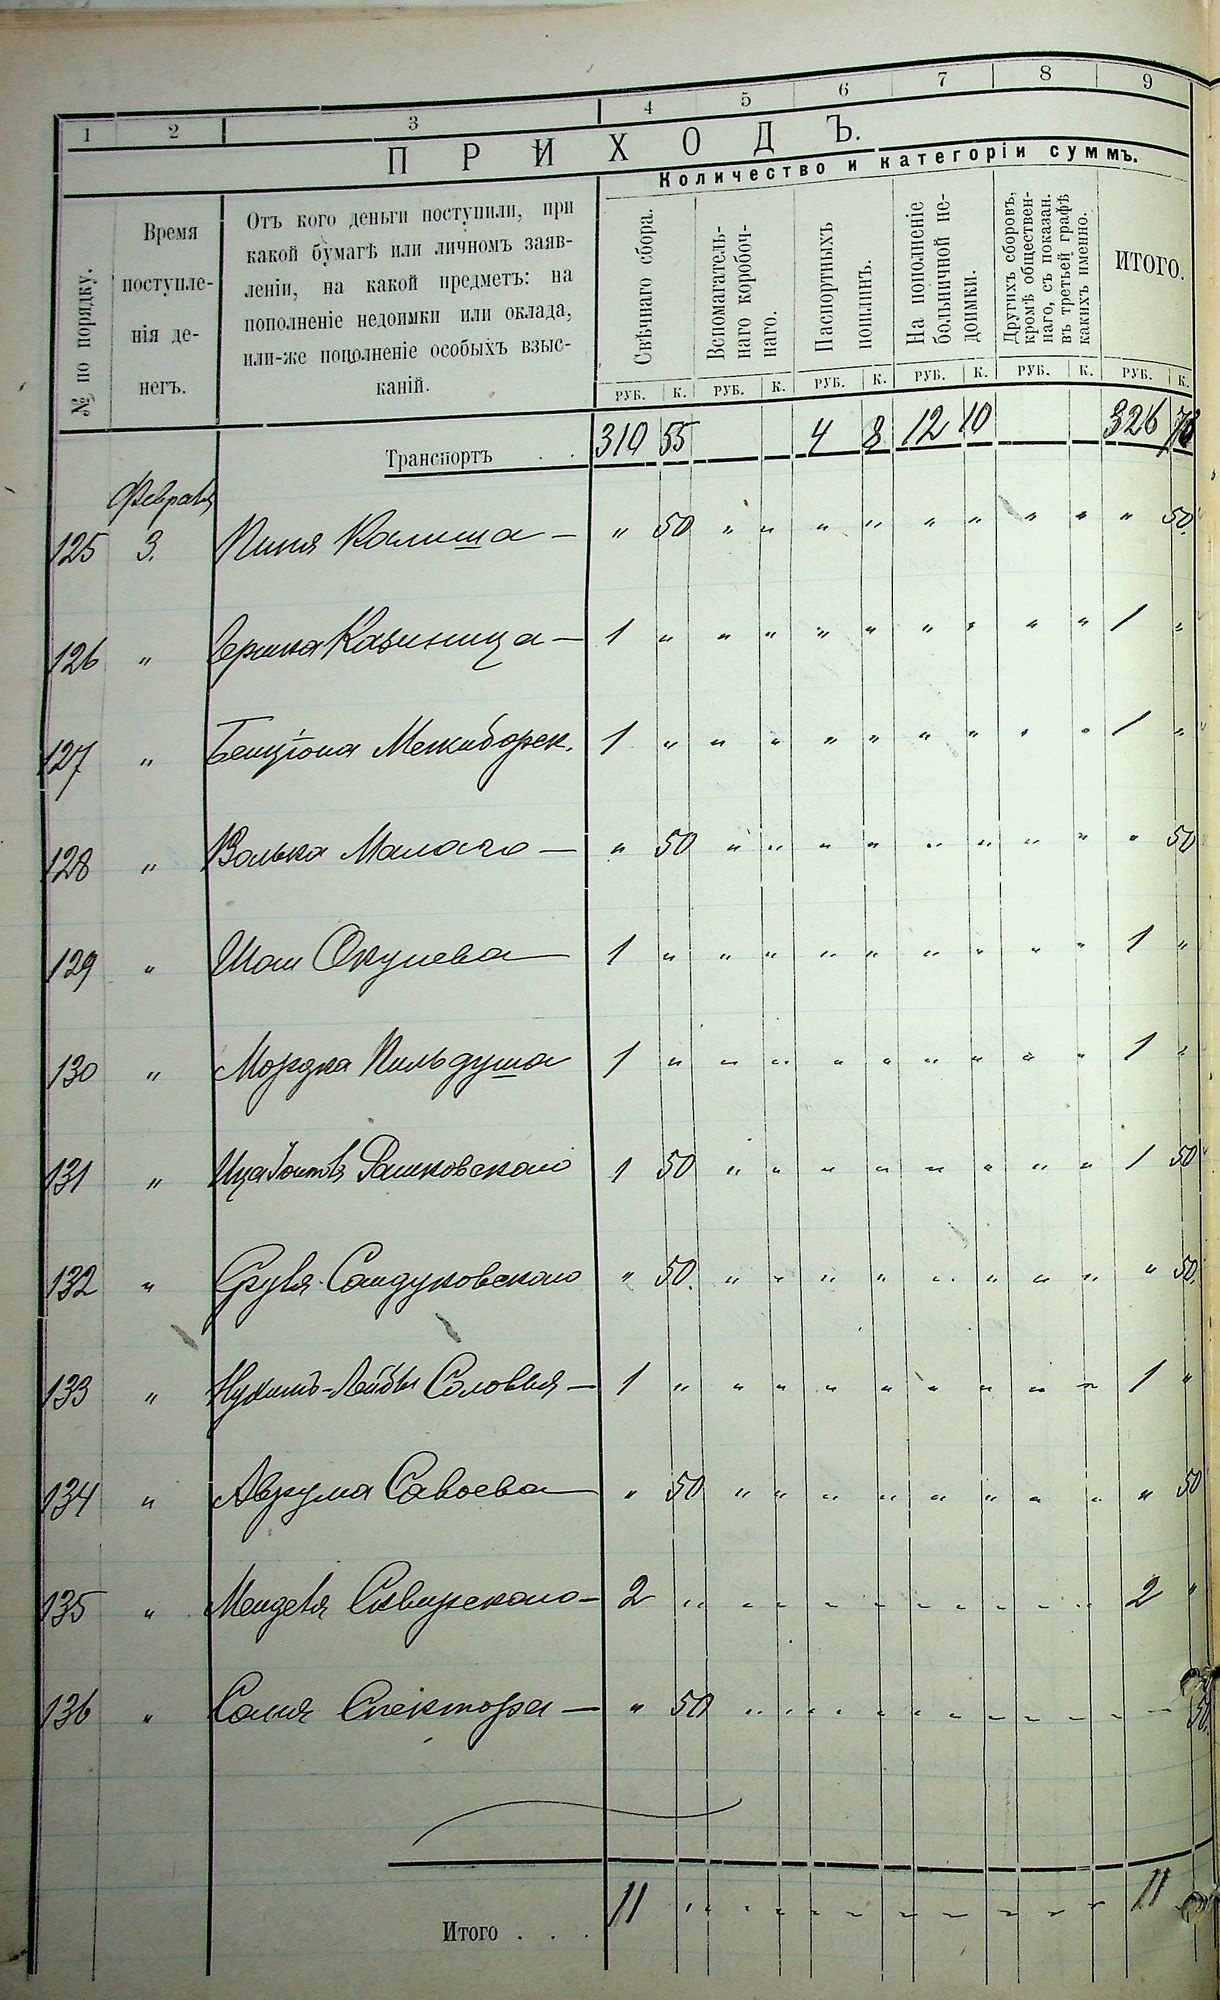 1 2 3 4 5 6 7 8 9
ПРИХОДЪ.
Количество и категоріи суммъ.
№ по порядку.
Время
поступле-
нія де-
негъ.
Отъ кого деньги поступили, при
какой бумагѣ или личномъ заяв-
леніи, на какой предметъ: на
пополненіе недоимки или оклада,
или-же пополненіе особыхъ взыс-
каній.
Свѣчнаго сбора.
Вспомагатель-
наго коробоч-
наго.
Паспортныхъ
пошлинъ.
На пополненіе
больничной не-
доимки.
Другихъ сборовъ,
кромѣ обществен-
наго, съ показан.
въ третьей графѣ
какихъ именно.
ИТОГО.
РУБ. К. РУБ. К. РУБ. К. РУБ. К. РУБ. К. РУБ. К.
Транспортъ . . 310 55 4 8 12 10 326 73
Февраля
125 3. Пиня Калиша — " 50 " " " " " " " " " 50.
126 " Казиница — 1 " " " " " " " " " 1 "
127 " Бенціона Межиборск. 1 " " " " " " " " " 1 "
128 " Волька Малаго — " 50 " " " " " " " " " 50
129 " Шаи Окунева — 1 " " " " " " " " " 1 "
130 " Мордка Пильдуша 1 " " " " " " " " " 1 "
131 " Рашковскаго 1 50 " " " " " " " " 1 50
132 " Сруля Сандуковскаго " 50. " " " " " " " " " 50.
133 " Нухимъ-Лейбы Соловья — 1 " " " " " " " " " 1 "
134 " Аврума Савоева — " 50 " " " " " " " " " 50
135 " Менделя Сквирскаго — 2 " " " " " " " " " 2 "
136 " Спектора — " 50 " " " " " " " " " 50.
Итого . . . 11 " " " " " " " " " 11